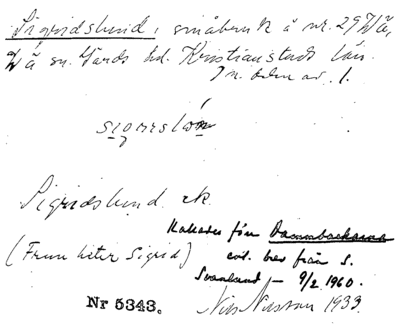 Sigridslund, småbruk å nr. 29 Vä,
Vä sn. Gärds hd. Kristianstads län.
av 1.
Sigridslund ek.
Kallades förr Dammbackarna
(Frun heter Sigrid) enl. brev från S.
Svanlund – 9/2 1960.
Nr 5343. Nils Nilsson 1933.